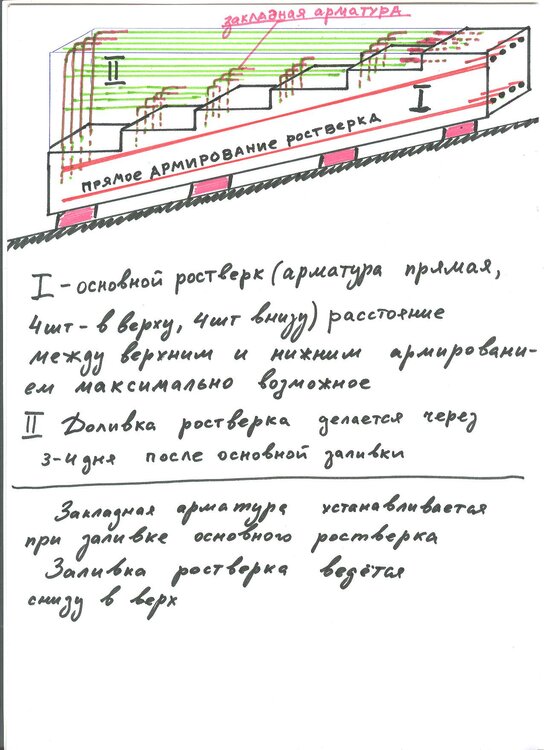 закладная арматура
II
I
прямое армирование ростверка
I - основной ростверк (арматура прямая,
4шт - в верху, 4шт внизу) расстояние
между верхним и нижним армировани-
ем максимально возможное
II Доливка ростверка делается через
3-4 дня после основной заливки
Закладная арматура устанавливается
при заливке основного ростверка
Заливка ростверка ведётся
снизу в верх